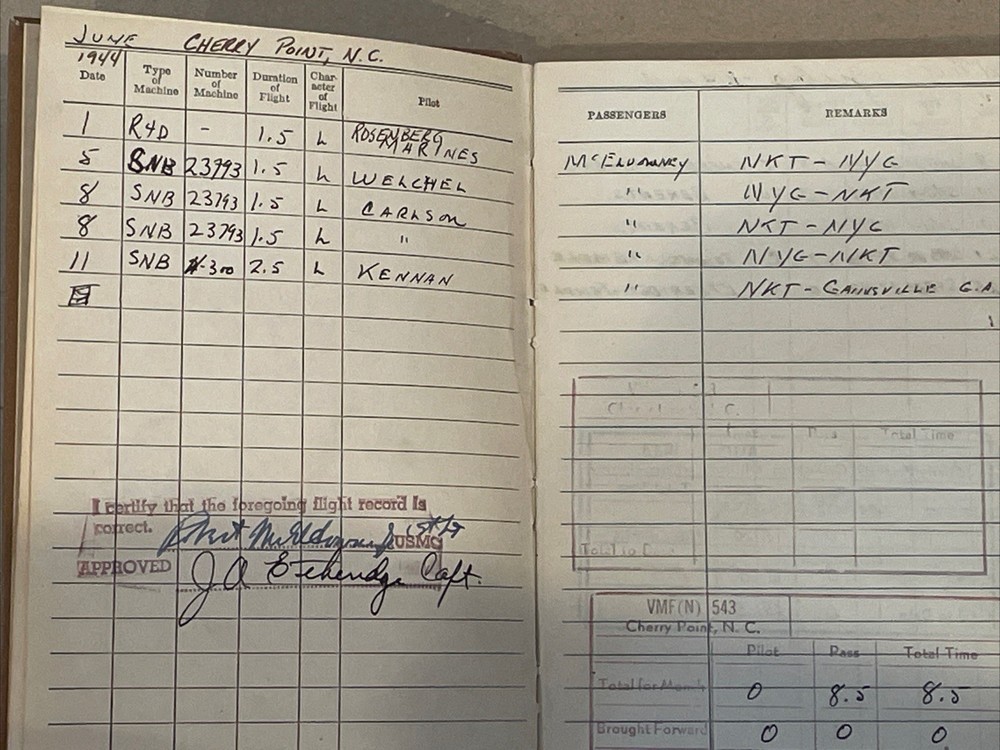 JUNE CHERRY POINT, N.C.
1944
Date Type of Machine Number of Machine Duration of Flight Character of Flight Pilot PASSENGERS REMARKS
1 R4D - 1.5 L ROSENBERG MARINES McELDOWNEY NKT - NYG
5 SNB 23793 1.5 L WELCHEL " NYG - NKT
8 SNB 23793 1.5 L CARLSON " NKT - NYG
8 SNB 23793 1.5 L " " NYG - NKT
11 SNB 300 2.5 L KENNAN " NKT - GAINSVILLE G.A.
I certify that the foregoing flight record is
correct. Robert McEldowney 1st Lt USMC
APPROVED J A Etheridge Capt.
Pass Total Time
VMF(N) 543
Cherry Point, N. C.
Pilot Pass Total Time
Total for Month 0 8.5 8.5
Brought Forward 0 0 0